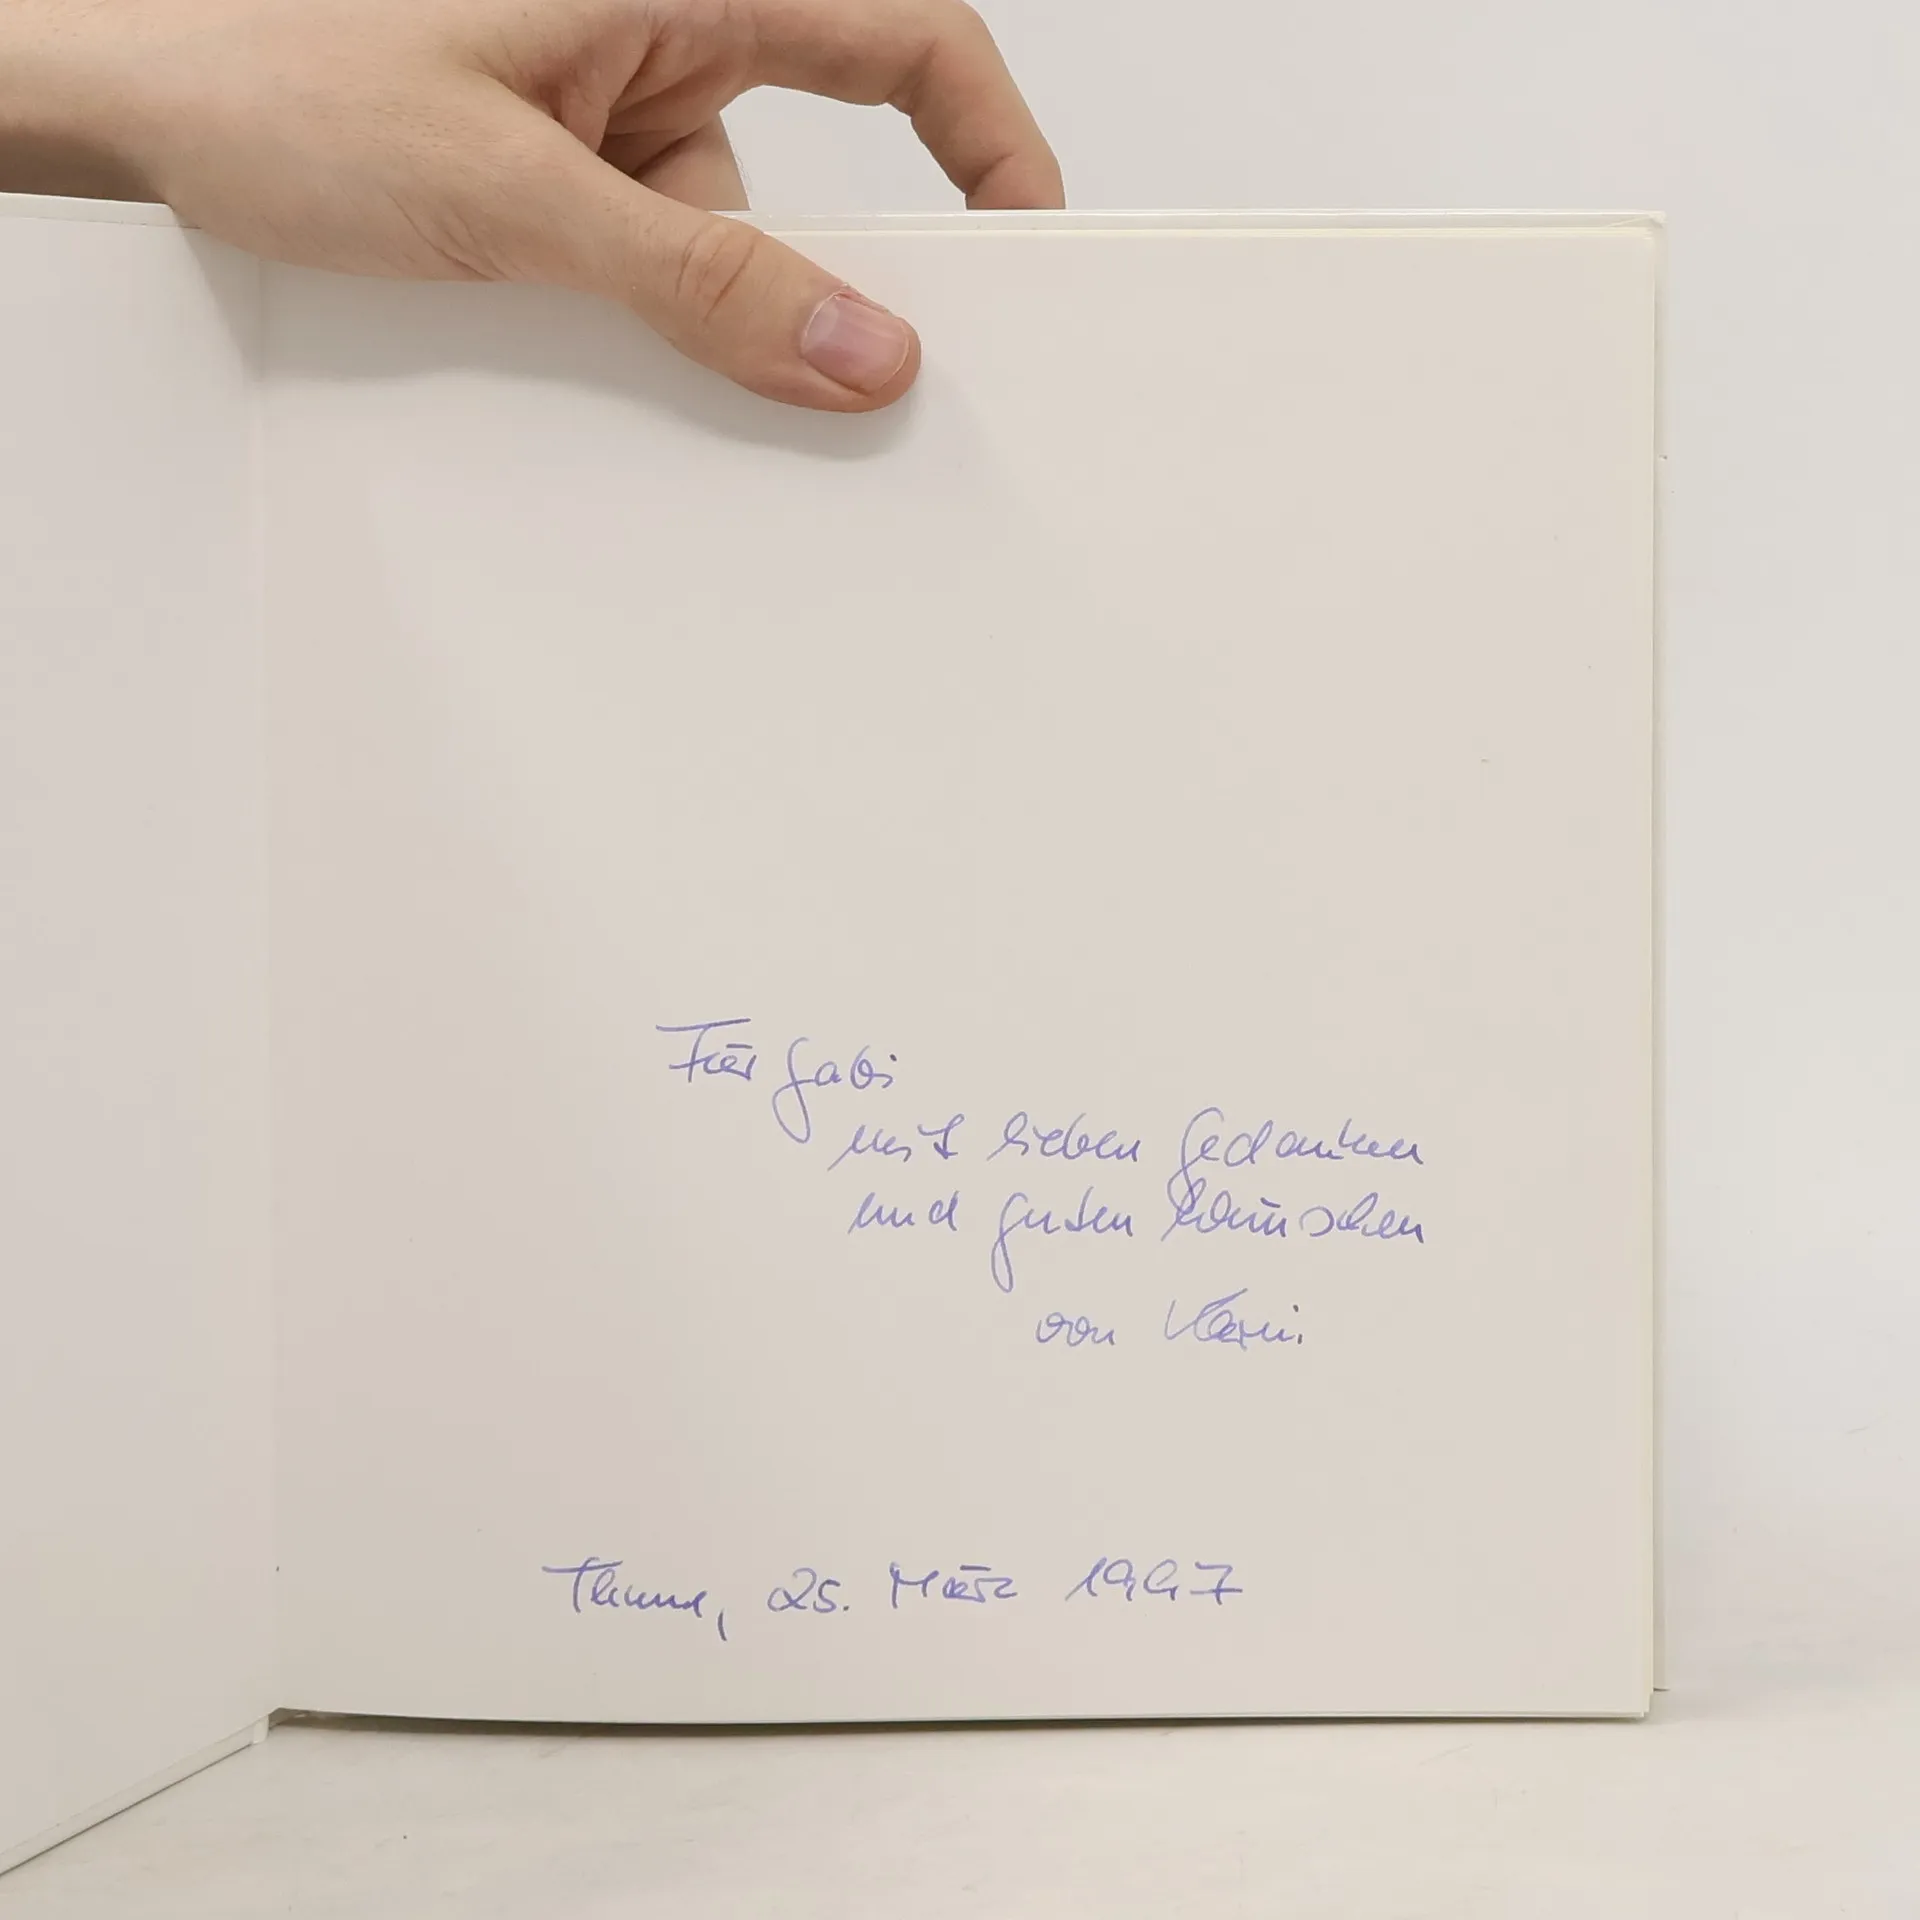 Für Gabi
mit lieben Gedanken
und guten Wünschen
von Karin.
25. März 1997